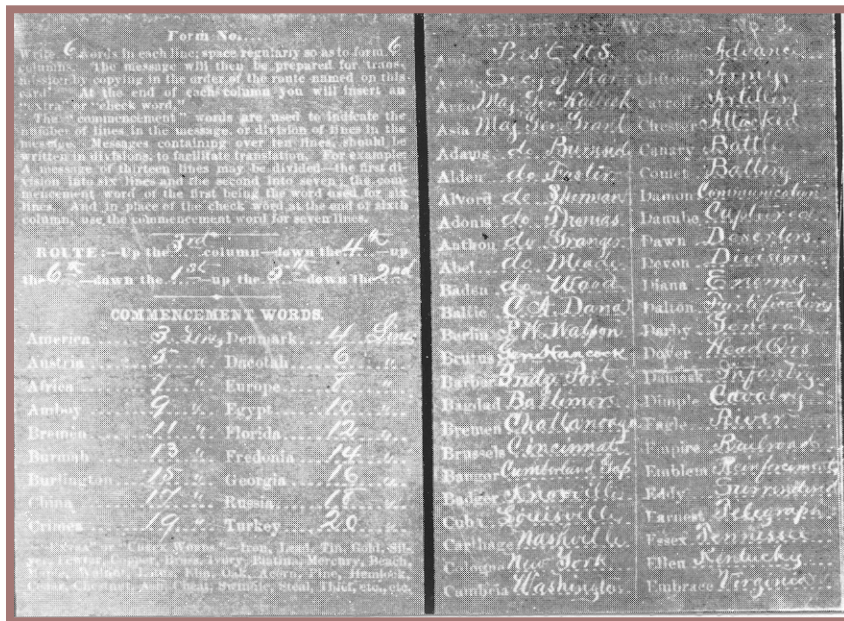 Form No....
Write 6 words in each line; space regularly so as to form 6
columns. The message will then be prepared for trans-
mission by copying in the order of the route named on this
card. At the end of each column you will insert an
"extra" or "check word."
The "commencement" words are used to indicate the
number of lines in the message, or division of lines in the
message. Messages containing over ten lines, should be
written in divisions, to facilitate translation. For example:
A message of thirteen lines may be divided—the first di-
vision into six lines and the second into seven; the com-
mencement word of the first being the word used for six
lines. And in place of the check word at the end of sixth
column, use the commencement word for seven lines.
ROUTE:—Up the 3rd column—down the 4th—up
the 6th—down the 1st—up the 5th—down the 2nd
COMMENCEMENT WORDS.
America 3 Lines Denmark 4 Lines
Austria 5 " Dacotah 6 "
Africa 7 " Europe 8 "
Amboy 9 " Egypt 10 "
Bremen 11 " Florida 12 "
Burmah 13 " Fredonia 14 "
Burlington 15 " Georgia 16 "
China 17 " Russia 18 "
Crimea 19 " Turkey 20 "
"Extra" or "Check Words"—Iron, Lead, Tin, Gold, Sil-
Copper, Brass, Ivory, Mercury, Beach,
Elm, Oak, Acorn, Pine, Hemlock,
Cedar, Chestnut, Cheat, Swindle, Steal, Thief, etc., etc.
ARBITRARY WORDS. No
Pres't U.S. Camden Advance
Sec'y of War Clifton Army
Anna Maj Gen Halleck Carroll Artillery
Asia Maj Gen Grant Chester Attacked
Adams do Burnside Canary Battle
Alden do Foster Comet Battery
Alvord do Sherman Damon Communication
Adonis do Thomas Danube Captured
Anthon do Granger Dawn Deserters
Abel do Meade Devon Division
Baden do Wood Diana Enemy
Baltic C. A. Dana Dalton Fortifications
Berlin P. H. Watson Darby General
Brutus Gen Hancock Dover Head Qrs
Barbar Bridge Port Damask Infantry
Bagdad Baltimore Dimple Cavalry
Bremen Chattanooga Eagle River
Brussels Cincinnati Empire Railroad
Bangor Cumberland Gap Emblem Reinforcements
Badger Knoxville Eddy Surrendered
Cuba Louisville Earnest Telegraph
Carthage Nashville Essex Tennessee
Cologne New York Ellen Kentucky
Cambria Washington Embrace Virginia